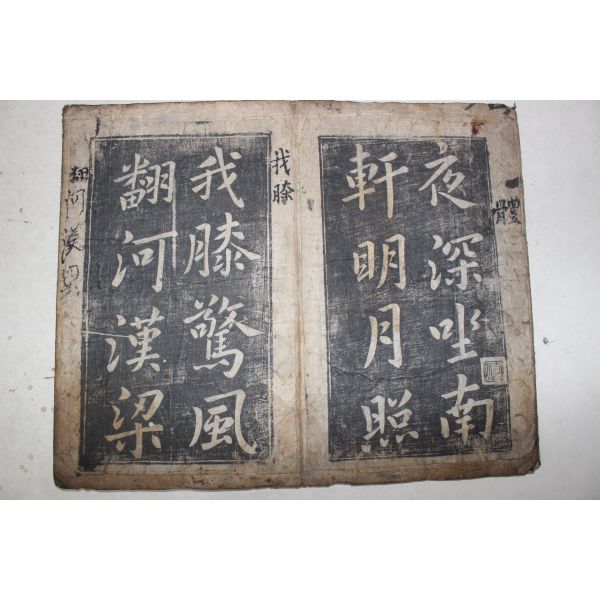 體
夜深坐南
軒眀月照
我膝
我膝驚風
翻河漢梁
翻河漢梁